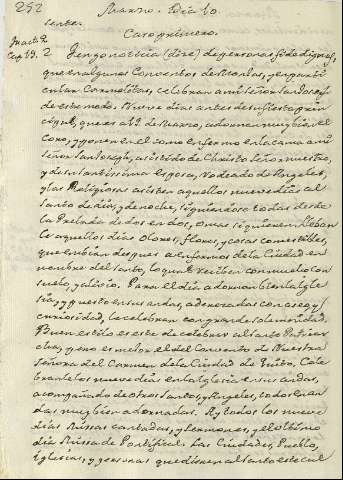 252 Marzo. Dia 10.
Caso primero.
Cap. 13. 2 Tengo noticia (dize) de personas fidedignas,
que en algunos Conventos de Monjas, y en parti
cular Carmelitas, celebran a mi Señor San Josef
de este modo. Nueve dias antes de su fiesta prin
cipal, que es a 19 de Marzo, adornan muy bien el
Coro, y ponen en el como enfermo en la cama a mi
Señor San Joseph, asistido de Christo Señor nuestro,
y de su Santissima esposa, rodeado de Angeles,
y las Religiosas asisten aquellos nueve dias al
Santo de dia, y de noche, siguiendose todas desde
la Prelada de dos en dos, o mas si quieren. Lleban
le aquellos dias Olores, flores, y cosas comestibles,
que embian despues a enfermos de la Ciudad en
nombre del Santo, lo qual reciben con mucho con
suelo, y alivio. Para el dia adornan bien la Igle
sia, y puesto en sus andas, aderezadas con aseo, y
curiosidad, le celebran con grande solemnidad.
Buen estilo es este de celebrar al Santo Patriar
cha, y no es menor el del Convento de Nuestra
Señora del Carmen de la Ciudad de Quito. Cele
branle los nueve dias en la Iglesia en sus andas,
acompañado de otros Santos, y Angeles, todos en an
das muy bien adornadas. Ay todos los nueve
dias Missas cantadas, y sermones, y el ultimo
dia Missa de Pontifical. Las Ciudades, Pueblos,
Iglesias, y personas que dieren al Santo este cul